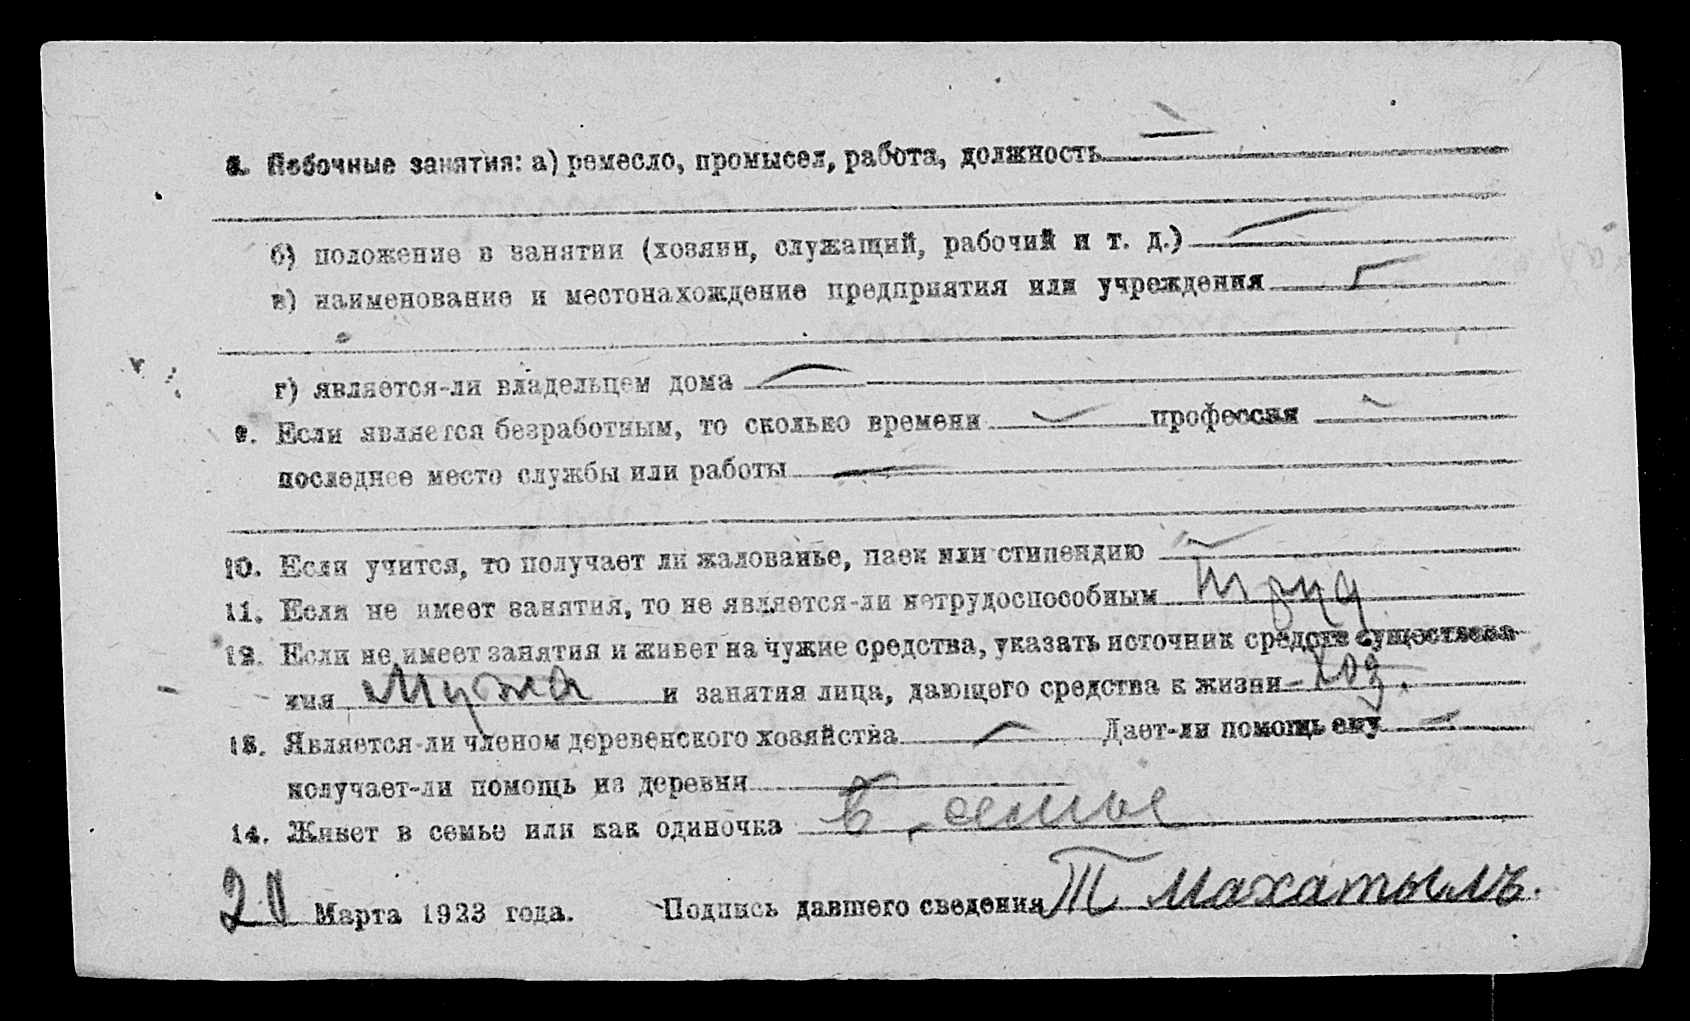 8. Побочные занятия: а) ремесло, промысел, работа, должность —
б) положение в занятии (хозяин, служащий, рабочий и т. д.) —
в) наименование и местонахождение предприятия или учреждения —
г) является-ли владельцем дома —
9. Если является безработным, то сколько времени — профессия —
последнее место службы или работы —
10. Если учится, то получает ли жалованье, паек или стипендию —
11. Если не имеет занятия, то не является-ли нетрудоспособным труд
12. Если не имеет занятия и живет на чужие средства, указать источник средств существова-
ния Мужа и занятия лица, дающего средства к жизни хоз.
13. Является-ли членом деревенского хозяйства — Дает-ли помощь ему —
получает-ли помощь из деревни —
14. Живет в семье или как одиночка в семье
20 Марта 1923 года. Подпись давшего сведения Т Махатылъ.